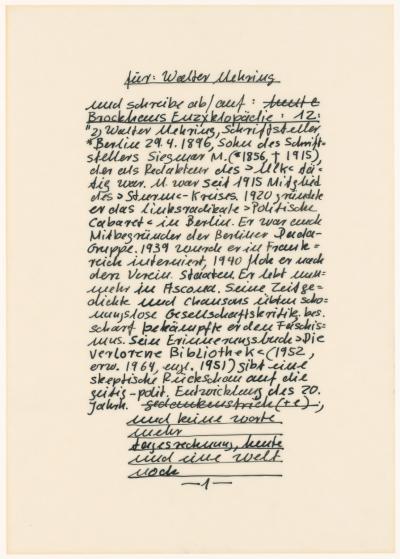 für: Walter Mehring
und schreibe ab/auf: heute
Brockhaus Enzyklopädie: 12:
"2) Walter Mehring, Schriftsteller,
*Berlin 29.4.1896, Sohn des Schrift=
stellers Siegmar M. (*1856, † 1915),
der als Redakteur des >Ulk< tä=
tig war. M. war seit 1915 Mitglied
des >Sturm<-Kreises. 1920 gründete
er das linksradikale >Politische
Cabaret< in Berlin. Er war auch
Mitbegründer der Berliner Dada-
Gruppe. 1939 wurde er in Frank=
reich interniert, 1940 floh er nach
den Verein. Staaten. Er lebt nun=
mehr in Ascona. Seine Zeitge=
dichte und Chansons übten scho=
nungslose Gesellschaftskritik, bes.
scharf bekämpfte er den Faschis=
mus. Sein Erinnerungsbuch >Die
verlorene Bibliothek< (1952,
erw. 1964, engl. 1951) gibt eine
skeptische Rückschau auf die
geistig-polit. Entwicklung des 20.
Jahrh. gedankenstrich (+e),
und keine worte
mehr
tagesrechnung, heute
und eine welt
noch
—1—